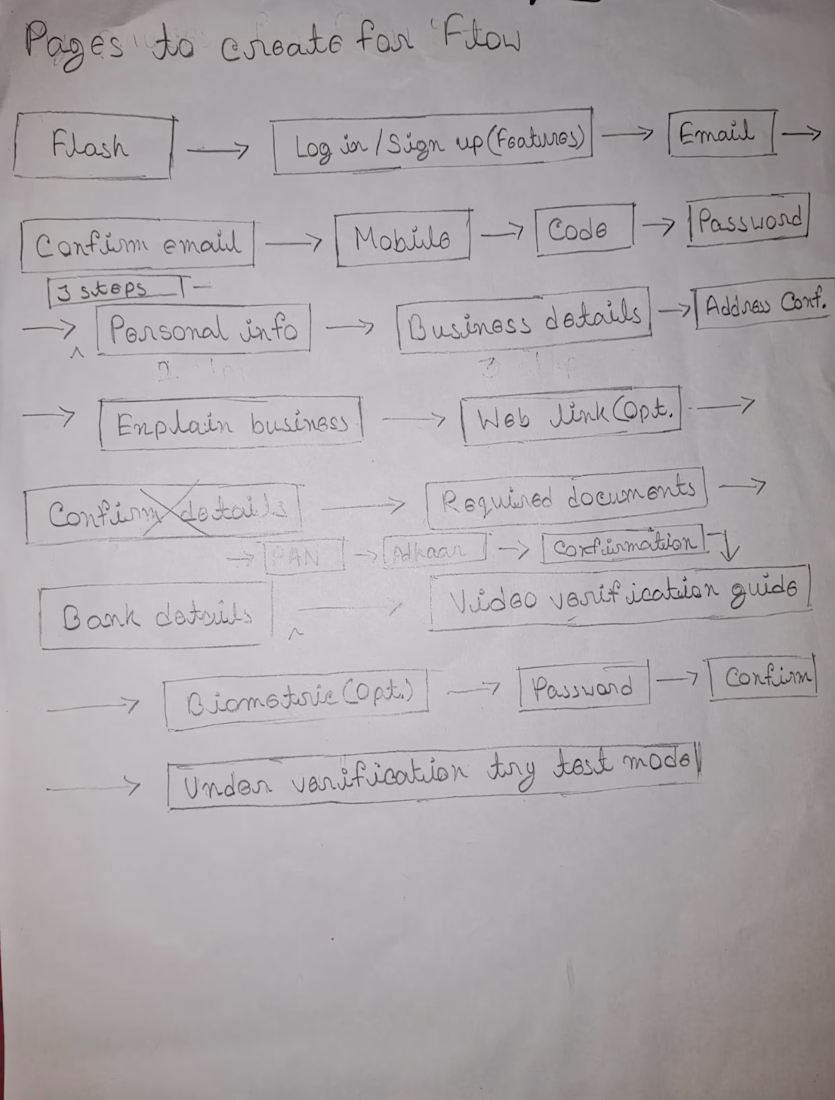 Pages to create for Flow
Flash → Log in / Sign up (Features) → Email →
Confirm email → Mobile → Code → Password
3 steps
→ Personal info → Business details → Address Conf.
→ Explain business → Web link (Opt. →
Confirm details → Required documents →
→ PAN → Adhaar → Confirmation
Bank details → Video verification guide
→ Biometric (Opt.) → Password → Confirm
→ Under verification try test mode